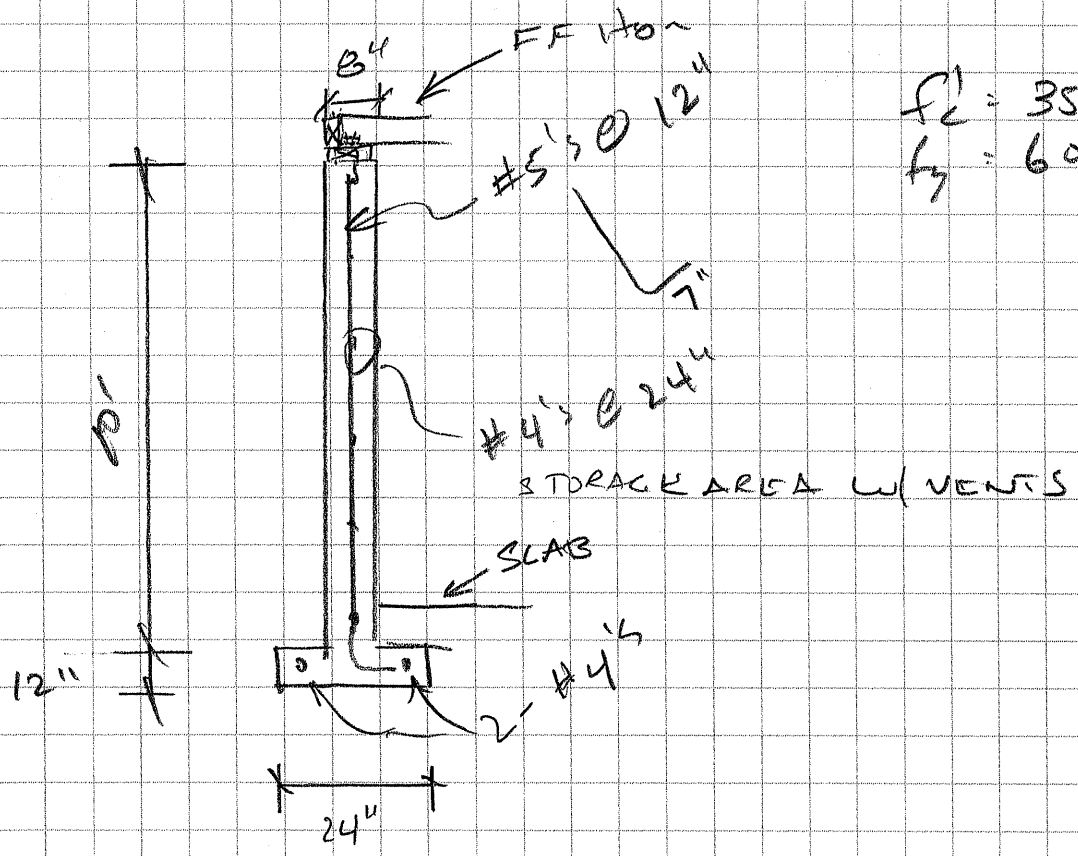 8"
f'c = 35
fy = 60
#5's @ 12"
7"
#4's @ 24"
STORAGE AREA W/ VENTS
SLAB
12"
2-#4's
24"